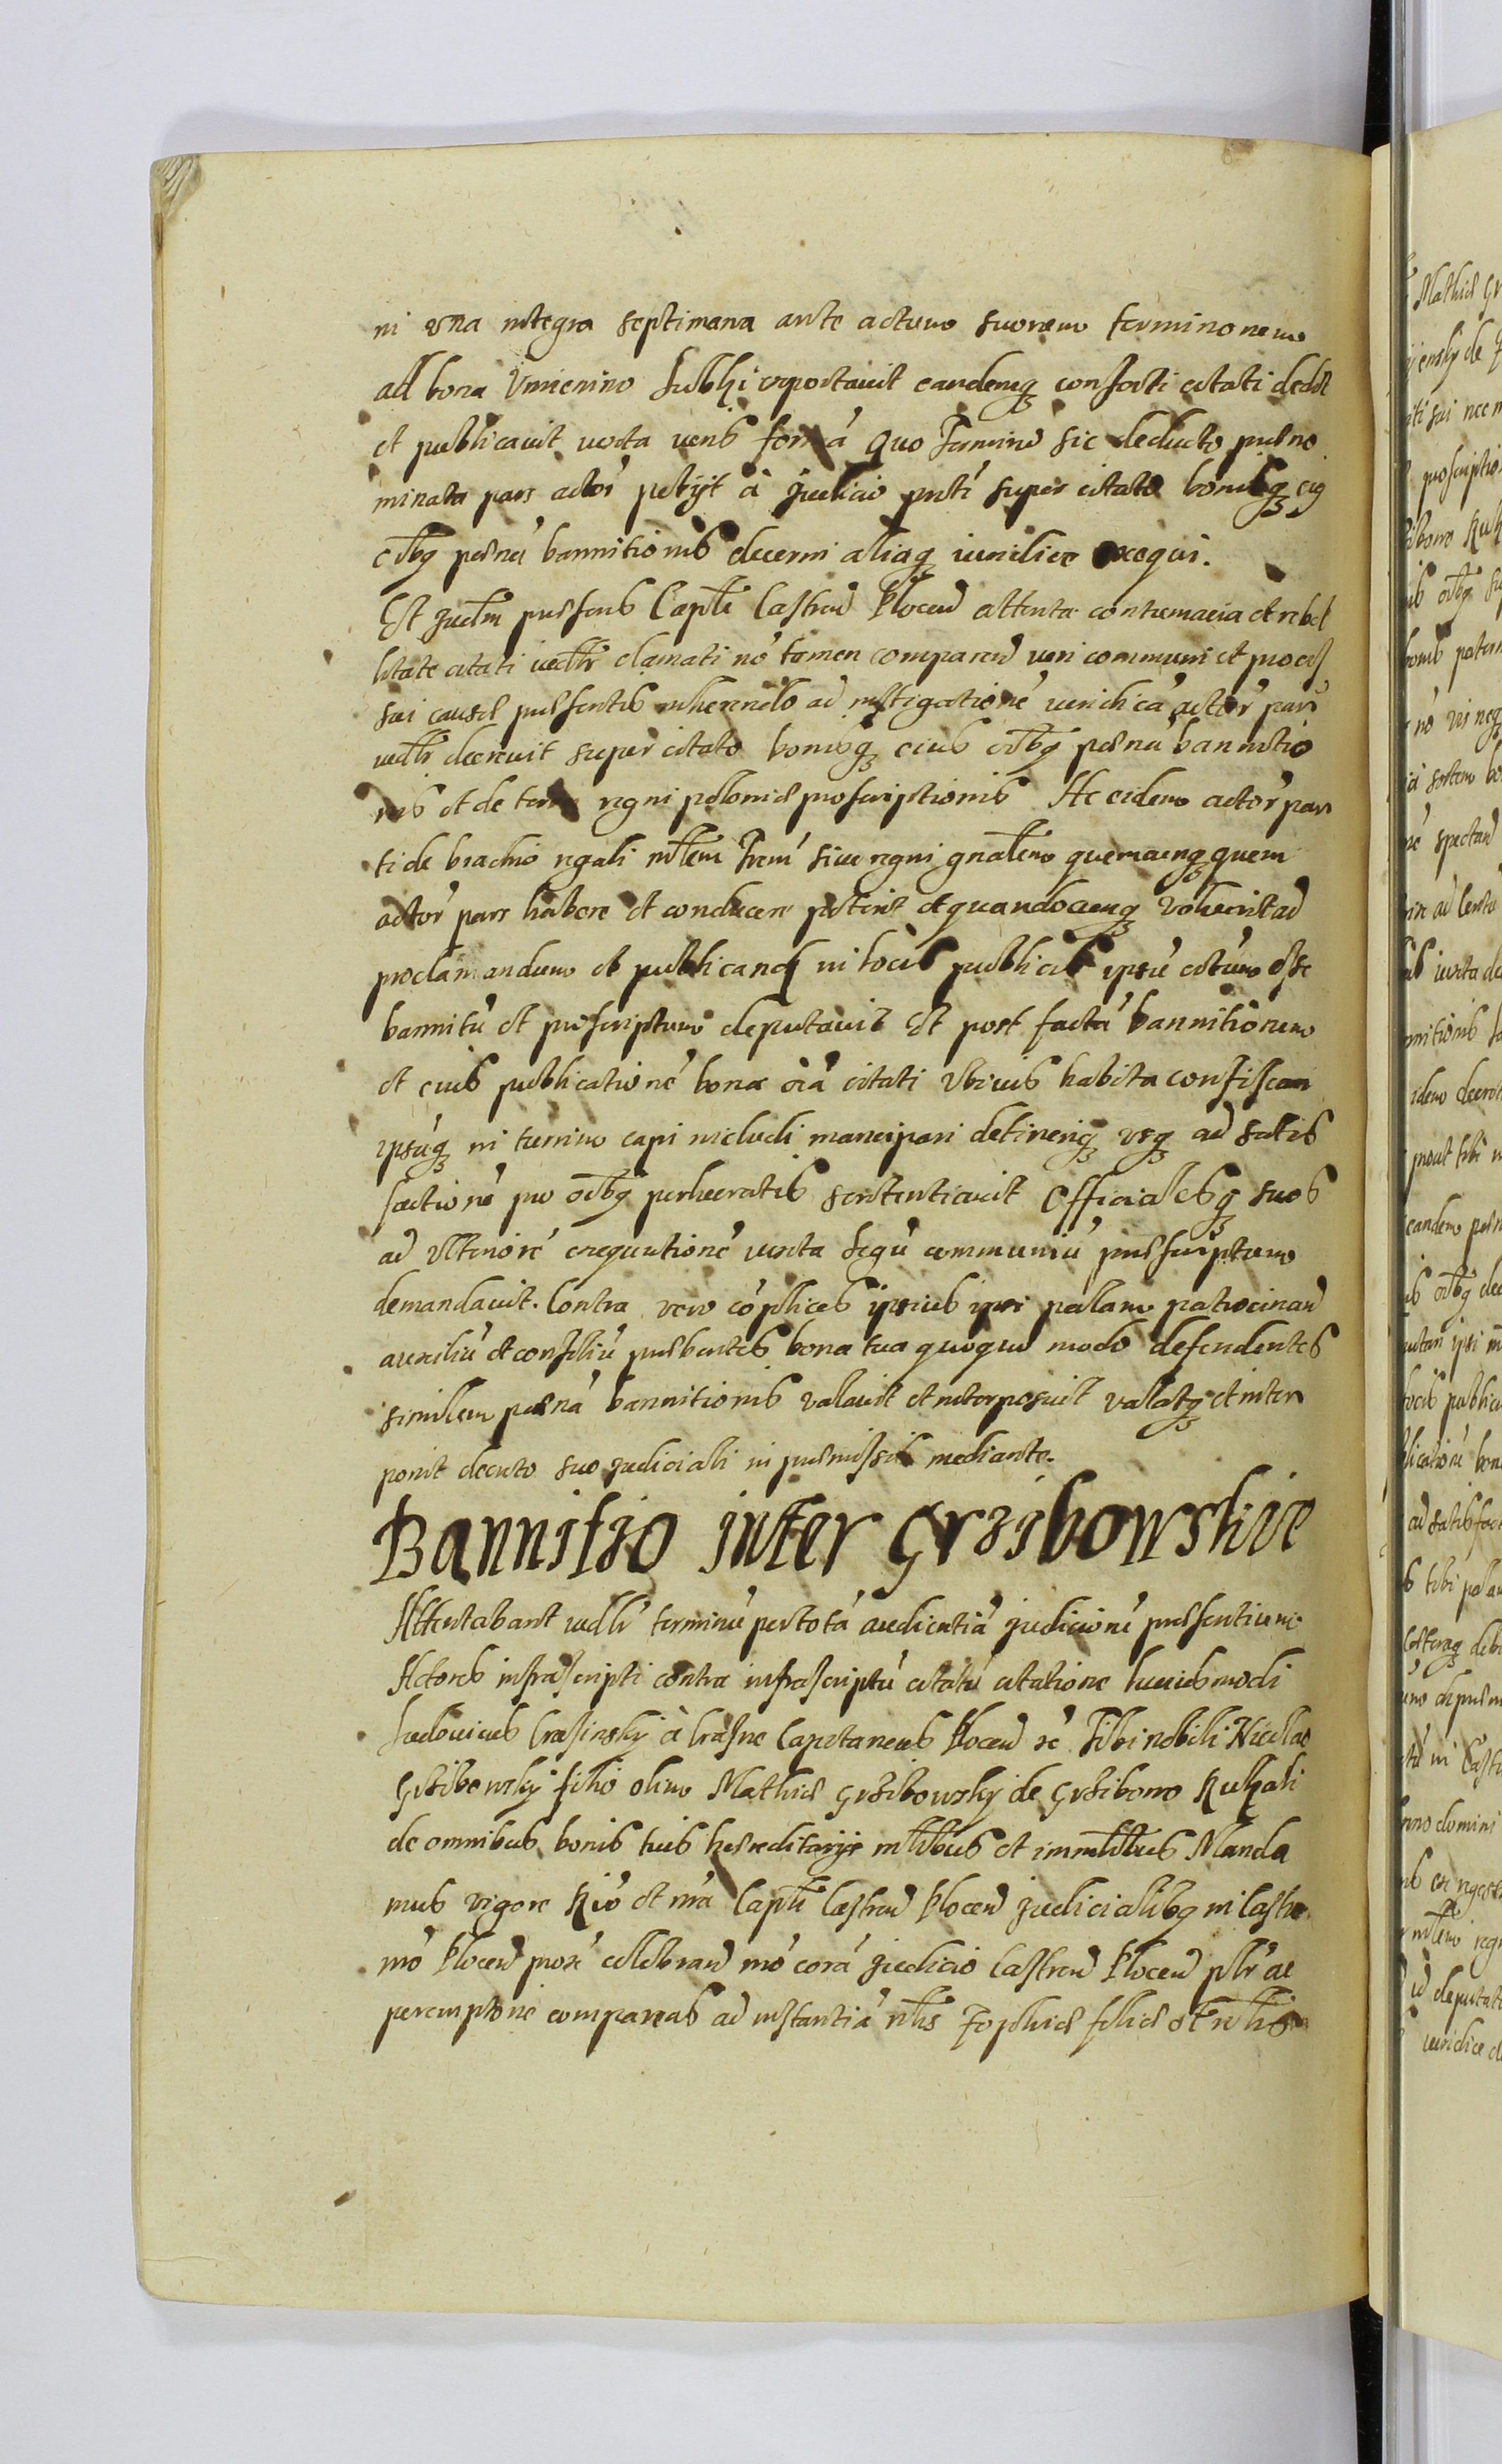 ni vna integra septimana ante actum suorum terminorum
ad bona Vmienino Sulkhi reportauit eandemq consorti citati dedit
et publicauit iuxta iuris formá Quo Termino sic deducto præno
minata pars actor petijt à Judicio pnti super citato bonisq eig
oibg pœná bannitionis decerni aliaq iuridice exequi.
Et Judm præsens Captle Castren Plocen attenta contumacia et rebel
litate citati iudlr clamati nó tamen comparen iuri communi et process
sui causæ præsentis inhærendo ad instigationé iuridicá actor part
iudlr decreuit super citato bonisq eius oibg pœná bannitio
nis et de terris regni poloniæ proscriptionis Ac eidem actor par
ti de brachio regali mlem Trem siue regni gnalem quemcunq quem
actor pars habere et conducere potuit et quandocunq voluerit ad
proclamandum et publicand in locis publicis ipsú citatum esse
bannitú et proscriptum deputauit Et post factá bannitionem
et eius publicationé bona oia citati vbiuis habita confiscari
ipsúq in turrim capi includi mancipari detineriq vsq ad satis
factioné pro oibg perlucratis sententiauit Officialesq suos
ad vlterioré exequutioné iuxta legú communiú præscriptum
demandauit. Contra vero cóplices ipsius ipsi palam patrocinan
auxiliú et consiliú præbentes bona sua quoquo modo defendentes
similem pœná bannitionis valauit et interposuit vallatq et inter
ponit decreto suo judiciali in præmissis mediante.
Bannitio inter Grzibowskie
Attentabant iudlr terminú per totá audientiá judiciorú præsentium
Actores infrascripti contra infrascriptú citatú citatione huiusmodi
Ludouicus Crasinsky à Crasne Capitaneus Plocen rc Tibi nobili Nicolao
Grzibowsky filio olim Mathiæ Grzibowsky de Grzibowo Kukali
de omnibus bonis tuis hæreditarijs mlibus et immlibus Manda
mus vigore Rio et nra Captle Castren Plocen judicialibg in Castro
nró Plocen prox celebran nró corá judicio Castren Plocen plr ac
peremptorie compareas ad instantiá nlis Zophiæ filiæ ol nlis